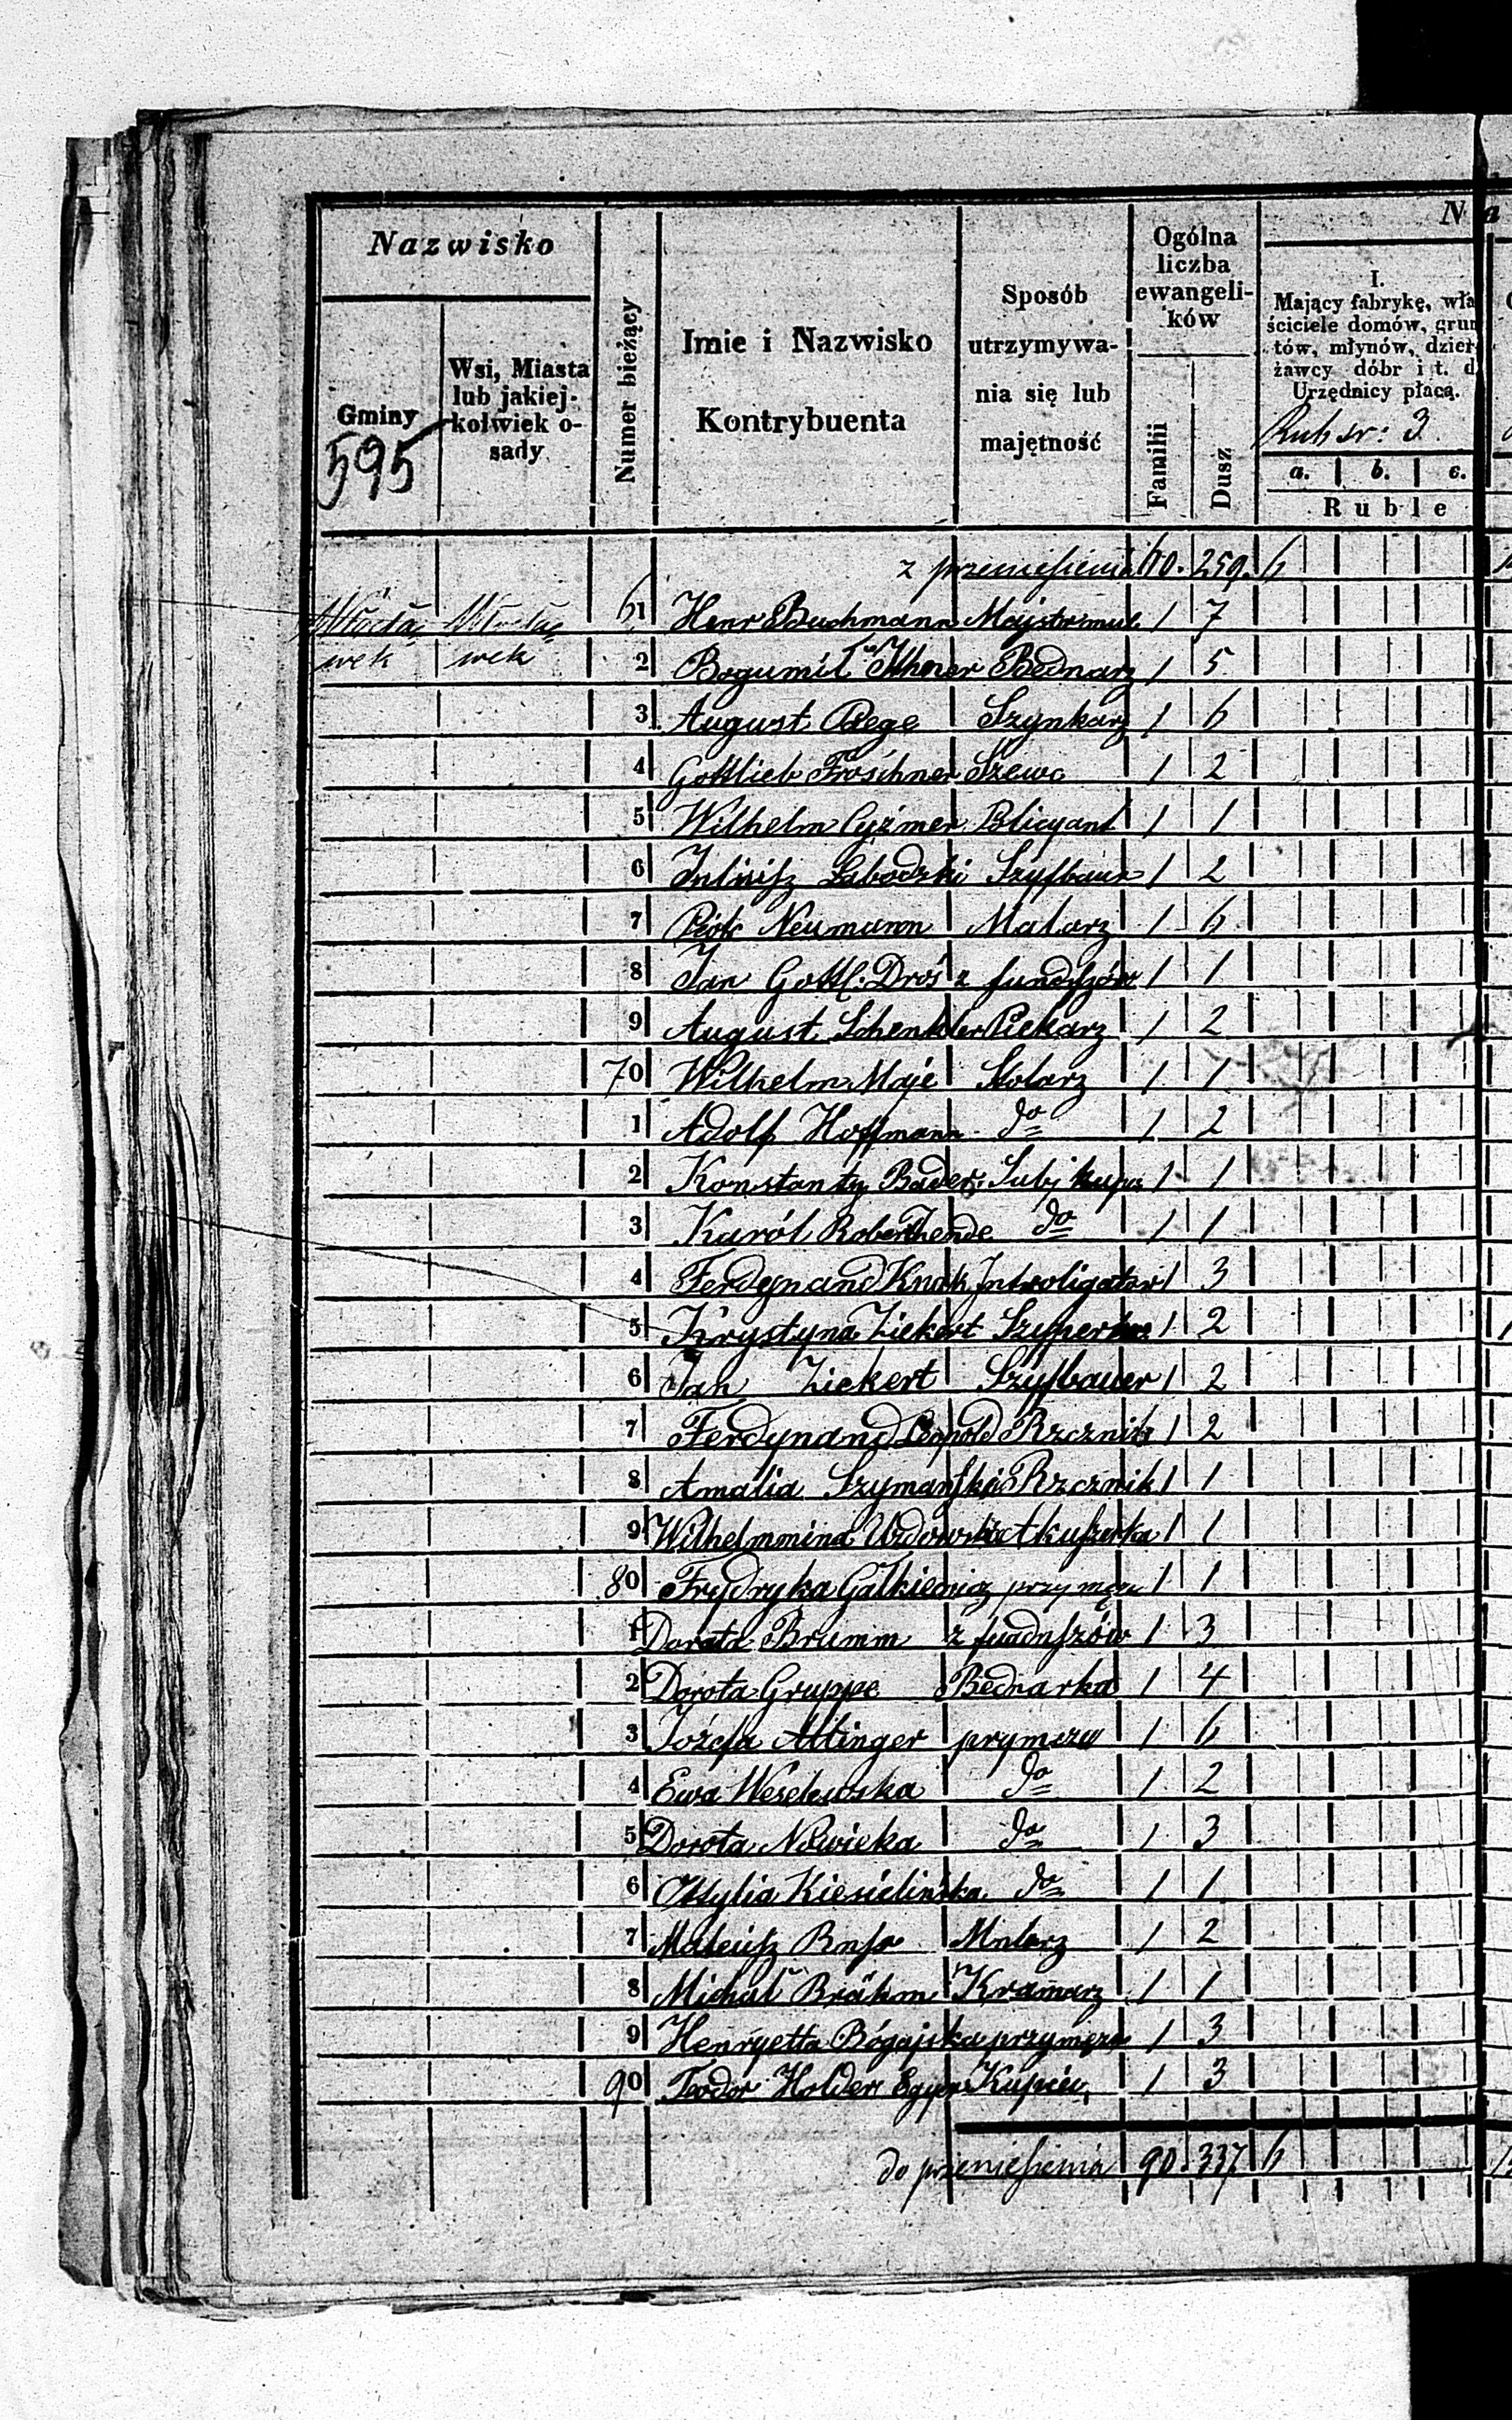 Nazwisko
Gminy
595
Wsi, Miasta lub jakiej-kolwiek o-sady
Numer bieżący
Imie i Nazwisko Kontrybuenta
Sposób utrzymywa-nia się lub majętność
Ogólna liczba ewangeli-ków
Familii
Dusz
Na
I.
Mający fabrykę, wła
ściciele domów, grun
tów, młynów, dzier
żawcy dóbr i t. d.
Urzędnicy płacą.
Rub sr: 3
a. b. c.
Ruble
z przeniesienia 60. 259. 6
Włocła= Włocła= 61 Henr Buchmann Majstr mul. 1 7
wek wek 2 Bogumił Bednarz 1 5
3 August Rege Szynkarz 1 6
4 Gottlieb Froschner Szewc 1 2
5 Wilhelm Cyżmer Policyant 1 1
6 Labodzki Szyfbauer 1 2
7 Piotr Neumann Malarz 1 6
8 Jan Gottl. Droś z fundszów 1 1
9 August Schenkler Piekarz 1 2
70 Wilhelm Maje Stolarz 1 1
1 Adolf Hoffmann do 1 2
2 Konstanty Bader Subj kupc 1 1
3 Karól Robert do 1 1
4 Ferdynand Knak Introligator 1 3
5 Krystyna Ziekert Szyperka 1 2
6 Jan Ziekert Szyfbauer 1 2
7 Ferdynand Leopold Rzeznik 1 2
8 Amalia Szymańska Rzeznik 1 1
9 Wilhelmmina Uzdowska Akuszerka 1 1
80 Frydryka Gałkiewicz przy mężu 1 1
1 Dorota Brumm z funduszów 1 3
2 Dorota Gruppe Bednarka 1 4
3 Józefa Altinger prymezu 1 6
4 Ewa do 1 2
5 Dorota Nowicka do 1 3
6 Ottylia Kiesielińska do 1 1
7 Mateusz Malarz 1 2
8 Michał Brähm Kramarz 1 1
9 Henryetta Bógajska przymęzu 1 3
90 Teodor Holder Egger Kupiec 1 3
do przeniesienia 90. 337. 6